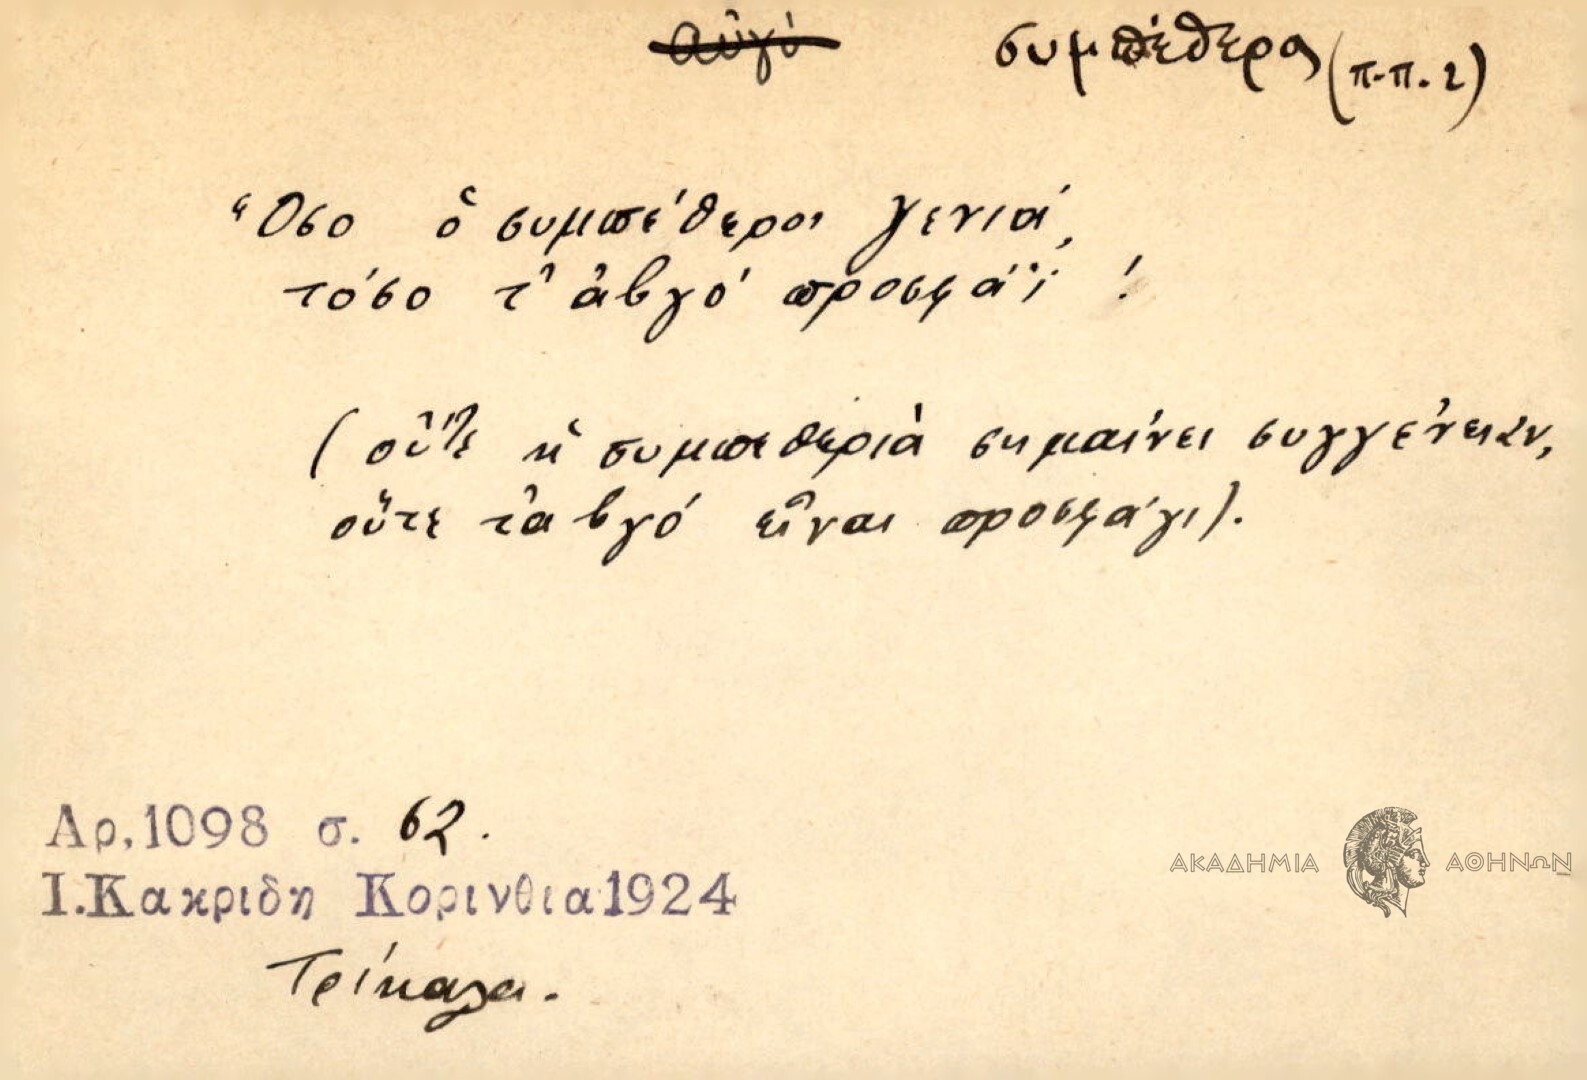 αὐγό συμπέθερος (π.π. 2)
Ὅσο ὁ συμπέθερος γενιά,
τόσο τ' ἀβγό προσφάϊ!
(οὔτε ἡ συμπεθεριὰ σημαίνει συγγένειαν,
οὔτε τἀβγό εἶναι προσφάγι).
Αρ.1098 σ. 62.
Ι.Κακριδη Κορινθια 1924
Τρίκαλα.
ΑΚΑΔΗΜΙΑ ΑΘΗΝΩΝ